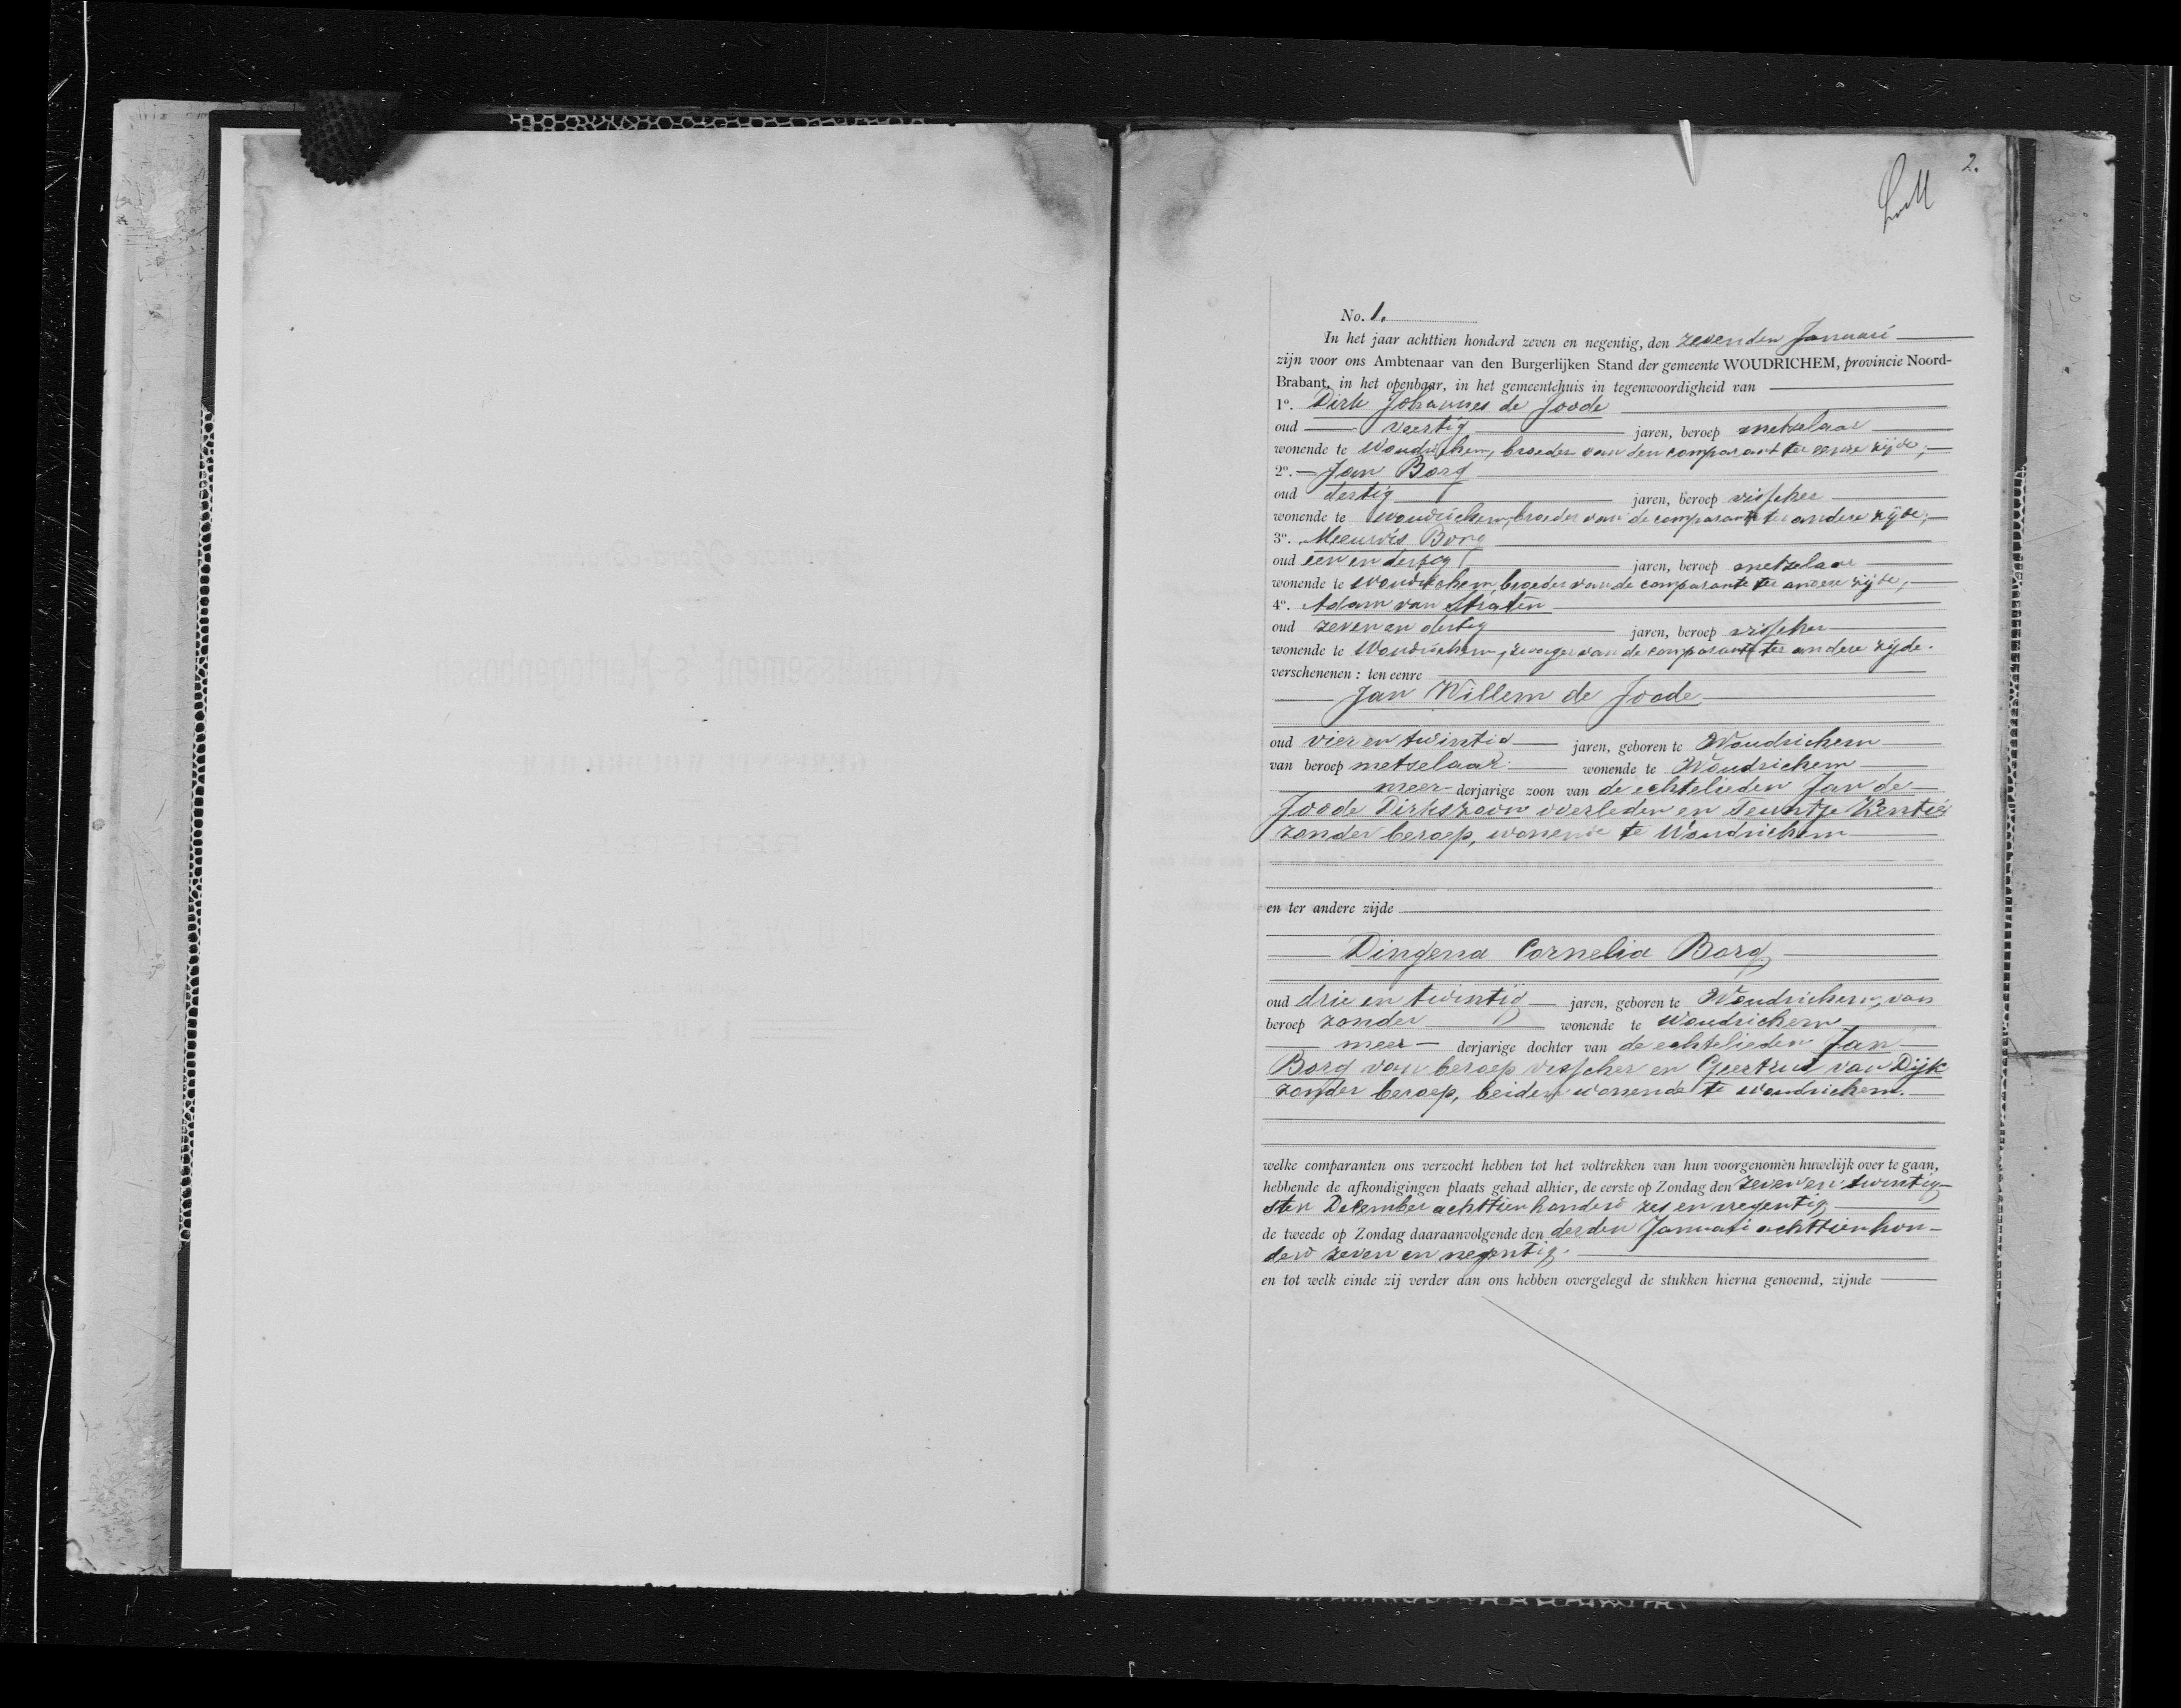 2.
No. 1.
In het jaar achttien honderd zeven en negentig, den zevenden Januari
zijn voor ons Ambtenaar van den Burgerlijken Stand der gemeente WOUDRICHEM, provincie Noord-
Brabant, in het openbaar, in het gemeentehuis in tegenwoordigheid van
1°. Dirk Johannes de Joode
oud veertig jaren, beroep metselaar
wonende te Woudrichem, broeder van den comparant ter eenre zijde;
2°. Jan Borg
oud dertig jaren, beroep visscher
wonende te Woudrichem, broeder van de comparante ter andere zijde;
3°. Meeuwis Borg
oud een en dertig jaren, beroep metselaar
wonende te Woudrichem, broeder van de comparante ter andere zijde;
4°. Adam van Straten
oud zeven en dertig jaren, beroep visscher
wonende te Woudrichem, zwager van de comparante ter andere zijde.
verschenen: ten eenre
Jan Willem de Joode
oud vier en twintig jaren, geboren te Woudrichem
van beroep metselaar wonende te Woudrichem
meer derjarige zoon van de echtelieden Jan de
Joode Dirkszoon overleden en Teuntje Kentie
zonder beroep, wonende te Woudrichem
en ter andere zijde
Dingena Cornelia Borg
oud drie en twintig jaren, geboren te Woudrichem, van
beroep zonder wonende te Woudrichem
meer derjarige dochter van de echtelieden Jan
Borg van beroep visscher en Geertrui van Dijk
zonder beroep, beiden wonende te Woudrichem.
welke comparanten ons verzocht hebben tot het voltrekken van hun voorgenomen huwelijk over te gaan,
hebbende de afkondigingen plaats gehad alhier, de eerste op Zondag den zeven en twintig-
sten December achttien honderd zes en negentig
de tweede op Zondag daaraanvolgende den derden Januari achttienhon-
derd zeven en negentig.
en tot welk einde zij verder aan ons hebben overgelegd de stukken hierna genoemd, zijnde